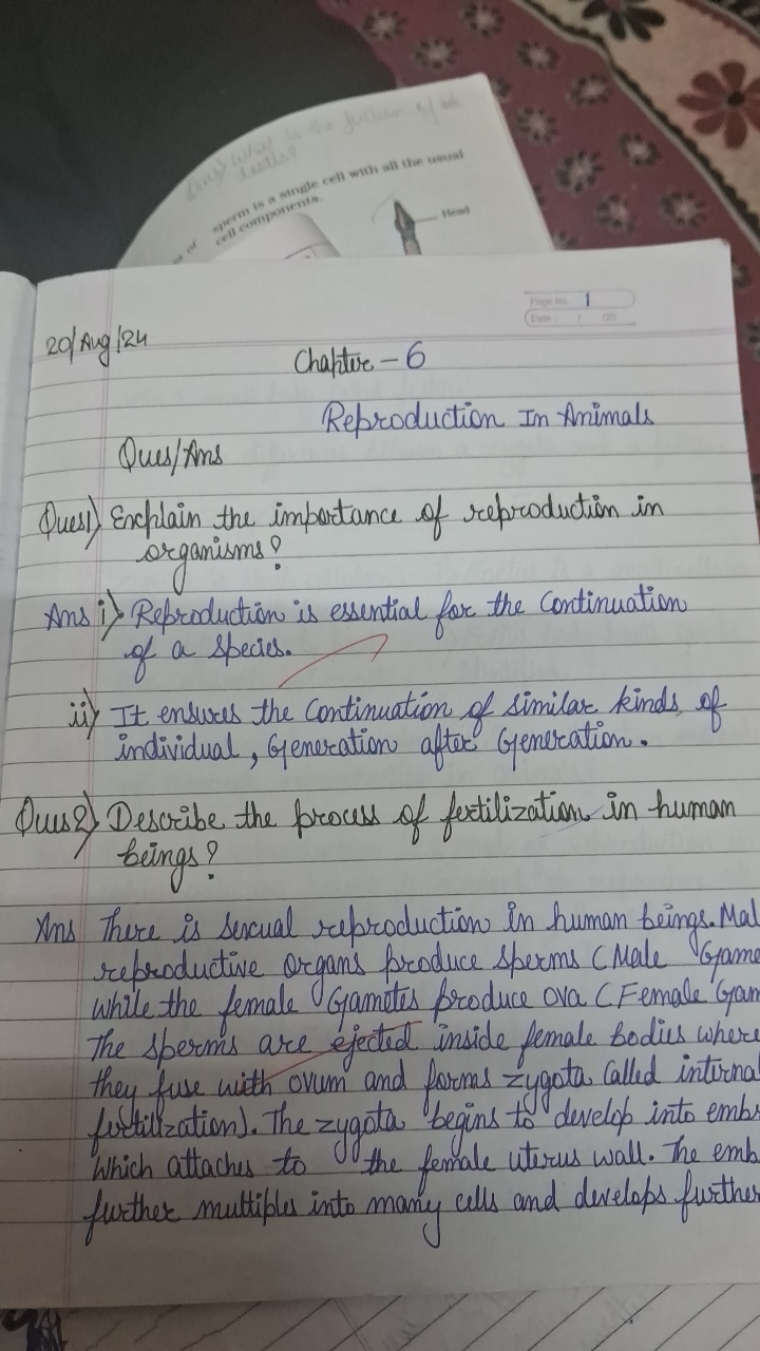 sperm is a single cell with all the usual
cell components.
Head
Page No. 1
Date: / /20
20/Aug/24
Chapter - 6
Reproduction In Animals
Ques/Ans
Ques1) Explain the importance of reproduction in
organisms?
Ans i) Reproduction is essential for the Continuation
of a species.
ii) It ensures the Continuation of similar kinds of
individual, Generation after Generation.
Ques2) Describe the process of fertilization in human
beings?
Ans There is sexual reproduction in human beings. Mal
reproductive organs produce sperms (Male Game
while the female Gametes produce ova (Female Gam
The sperms are ejected inside female bodies where
they fuse with ovum and forms zygota Called interna
fertilization). The zygota begins to develop into emb
which attaches to the female uterus wall. The emb
further multiples into many cells and develops further